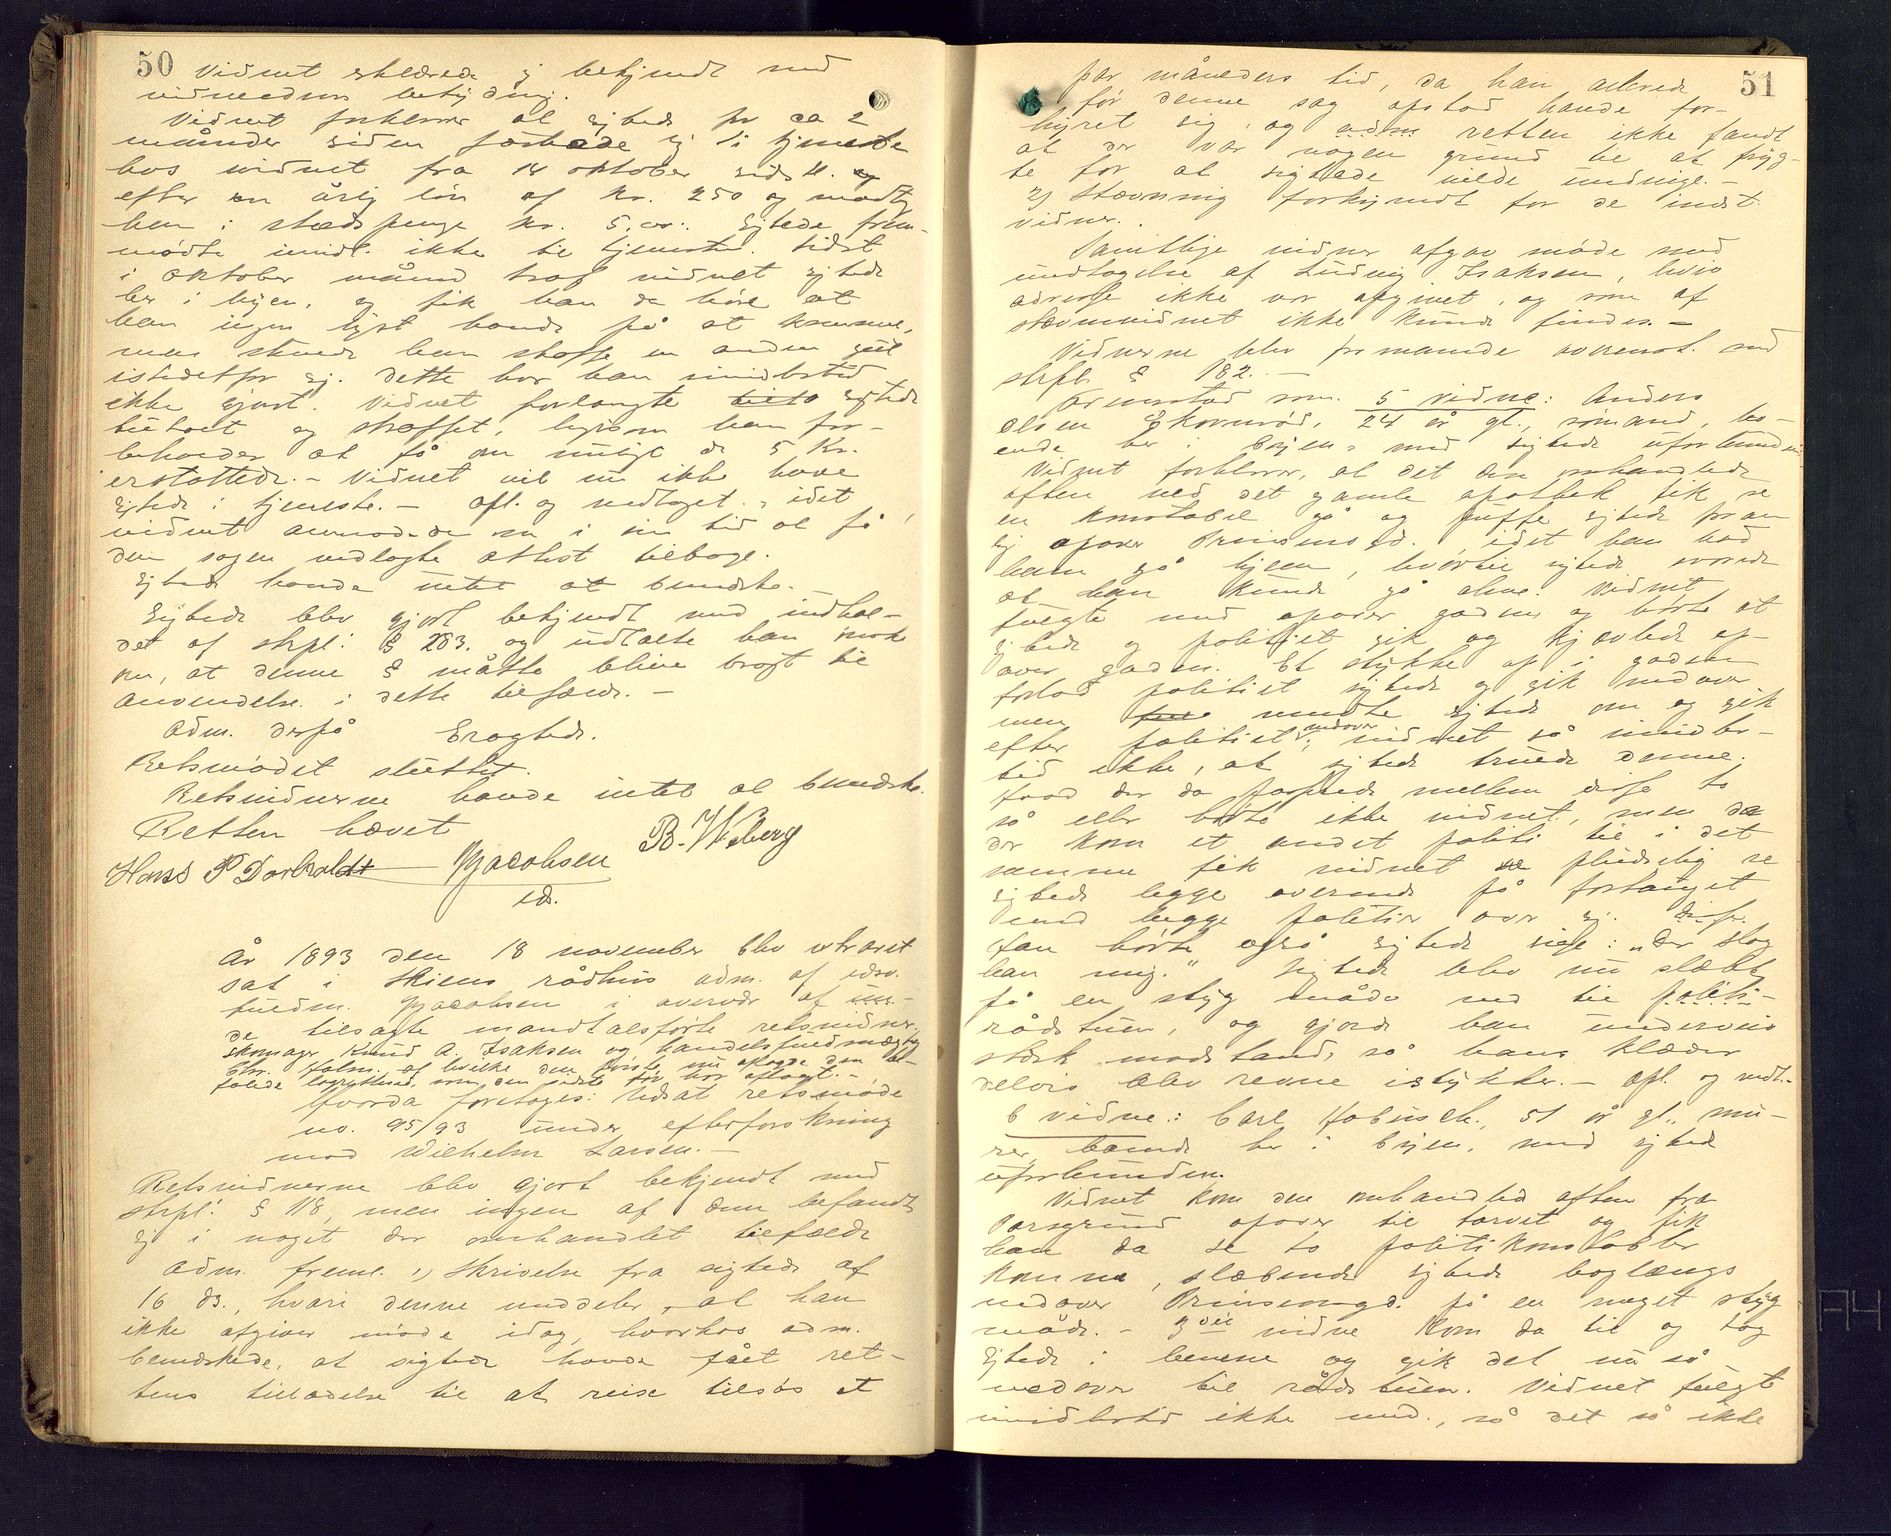 50
Vidnet erklærede sig bekjendt med
vidneedens betydning.
Vidnet forklarer at sigtede for ca 2
måneder siden fæstede sig i tjeneste
hos vidnet fra 14 oktober sidstl. og
efter en årlig løn af kr. 250 og modtog
han i stedspenge kr. 5,00. Sigtede frem-
mødte imidl. ikke til tjenestetid. Sidst
i oktober måned traf vidnet sigtede
her i byen, og fik han da høre at
han ingen lyst havde på at komme,
men skulde han skaffe en anden gut
istedetfor sig. Dette har han imidlertid
ikke gjort. Vidnet forlangte sigtede
tiltalt og straffet, ligesom han for-
beholder at få om muligt de 5 kr.
erstattede. – Vidnet vil nu ikke have
sigtede i tjeneste. – Opl. og vedtaget, idet
vidnet anmodede om i sin tid at få
den sagen vedlagte attest tilbage.
Sigtede havde intet at bemærke.
Sigtede blev gjort bekjendt med indhol-
det af strpl. § 283. og udtalte han ønske
om, at denne § måtte blive bragt til
anvendelse i dette tilfælde. –
Adm. derpå Eragtede.
Retsmødet sluttet.
Retsvidnerne havde intet at bemærke.
Retten hævet
Hans P Dorholdt Jacobsen B. Wiberg
cd.
År 1893 den 18 november blev extraret
sat i Skiens rådhus adm. af edsv.
fuldm. Jacobsen i overvær af un-
de tilsagte mandtalsførte retsvidner.
skomager Knud A. Isaksen og handelsfuldmægtig
Chr. Holm. af hvilke den første nu aflagde den be-
falede lovrigthed, som den sidste før har aflagt. –
Hvorda foretoges: Udsat retsmøde
no. 95/93 under efterforskning
mod Wilhelm Larsen. –
Retsvidnerne blev gjort bekjendt med
strpl. § 118, men ingen af dem befandt
sig i noget der omhandlet tilfælde
Adm. freml. 1) Skrivelse fra sigtede af
16 ds., hvori denne meddeler, at han
ikke afgiver møde idag, hvorhos adm.
bemærkede, at sigtede havde fået ret-
tens tilladelse til at reise tilsøs et
51
par måneders tid, da han allerede
før denne sag opstod havde for-
hyret sig, og adm. retten ikke fandt
at der var nogen grund til at fryg-
te for at sigtede vilde undvige. –
2) Stævning forkyndt for de indst.
vidner.
Samtlige vidner afgav møde med
undtagelse af Ludvig Isaksen, hvis
adresse ikke var opgivet, og som af
stævnevidnet ikke kunde findes. –
Vidnerne blev formanede overenst. med
strpl. § 182. –
Fremstod som 5 vidne: Anders
Olsen Ekornrød, 24 år gl., sømand, bo-
ende her i byen, med sigtede uforbunden
Vidnet forklarer, at det den omhandlede
aften ved det gamle apothek fik se
en konstabel gå og puffe sigtede foran
sig opover Prinsensgd. idet han bad
ham gå hjem, hvortil sigtede svarede
at han kunde gå alene. Vidnet
fulgte med opover gaden og hørte at
sigtede og politiet gik og kjævlede op-
over gaden. Et stykke op i gaden
forlod politiet sigtede og gik nedover
men vendte sigtede om og gik
efter politiet nedover; vidnet så imidler-
tid ikke, at sigtede truede denne.
Hvad der da passerede mellem disse to
så eller hørte ikke vidnet, men da
der kom et andet politi til i det
samme fik vidnet pludselig se
sigtede ligge overende på fortauget
med begge politier over sig.
Han hørte også sigtede sige: „Der slog
han mig." Sigtede blev nu slæbt
på en styg måde ned til politi-
rådstuen, og gjorde han underveis
stærk modstand, så hans klæder
delvis blev revne istykker. – Opl. og vedt. –
6 vidne: Carl Hobusch, 51 år gl., mu-
rer, boende her i byen, med sigtede
uforbunden.
Vidnet kom den omhandled aften fra
Porsgrund opover til torvet og fik
han da se to politikonstabler
komme, slæbende sigtede baglængs
nedover Prinsensgd. på en noget styg
måde. – 3die vidne kom da til og tog
sigtede i benene og gik det nu så
nedover til rådstuen. Vidnet fulgte
imidlertid ikke med, så det så ikke